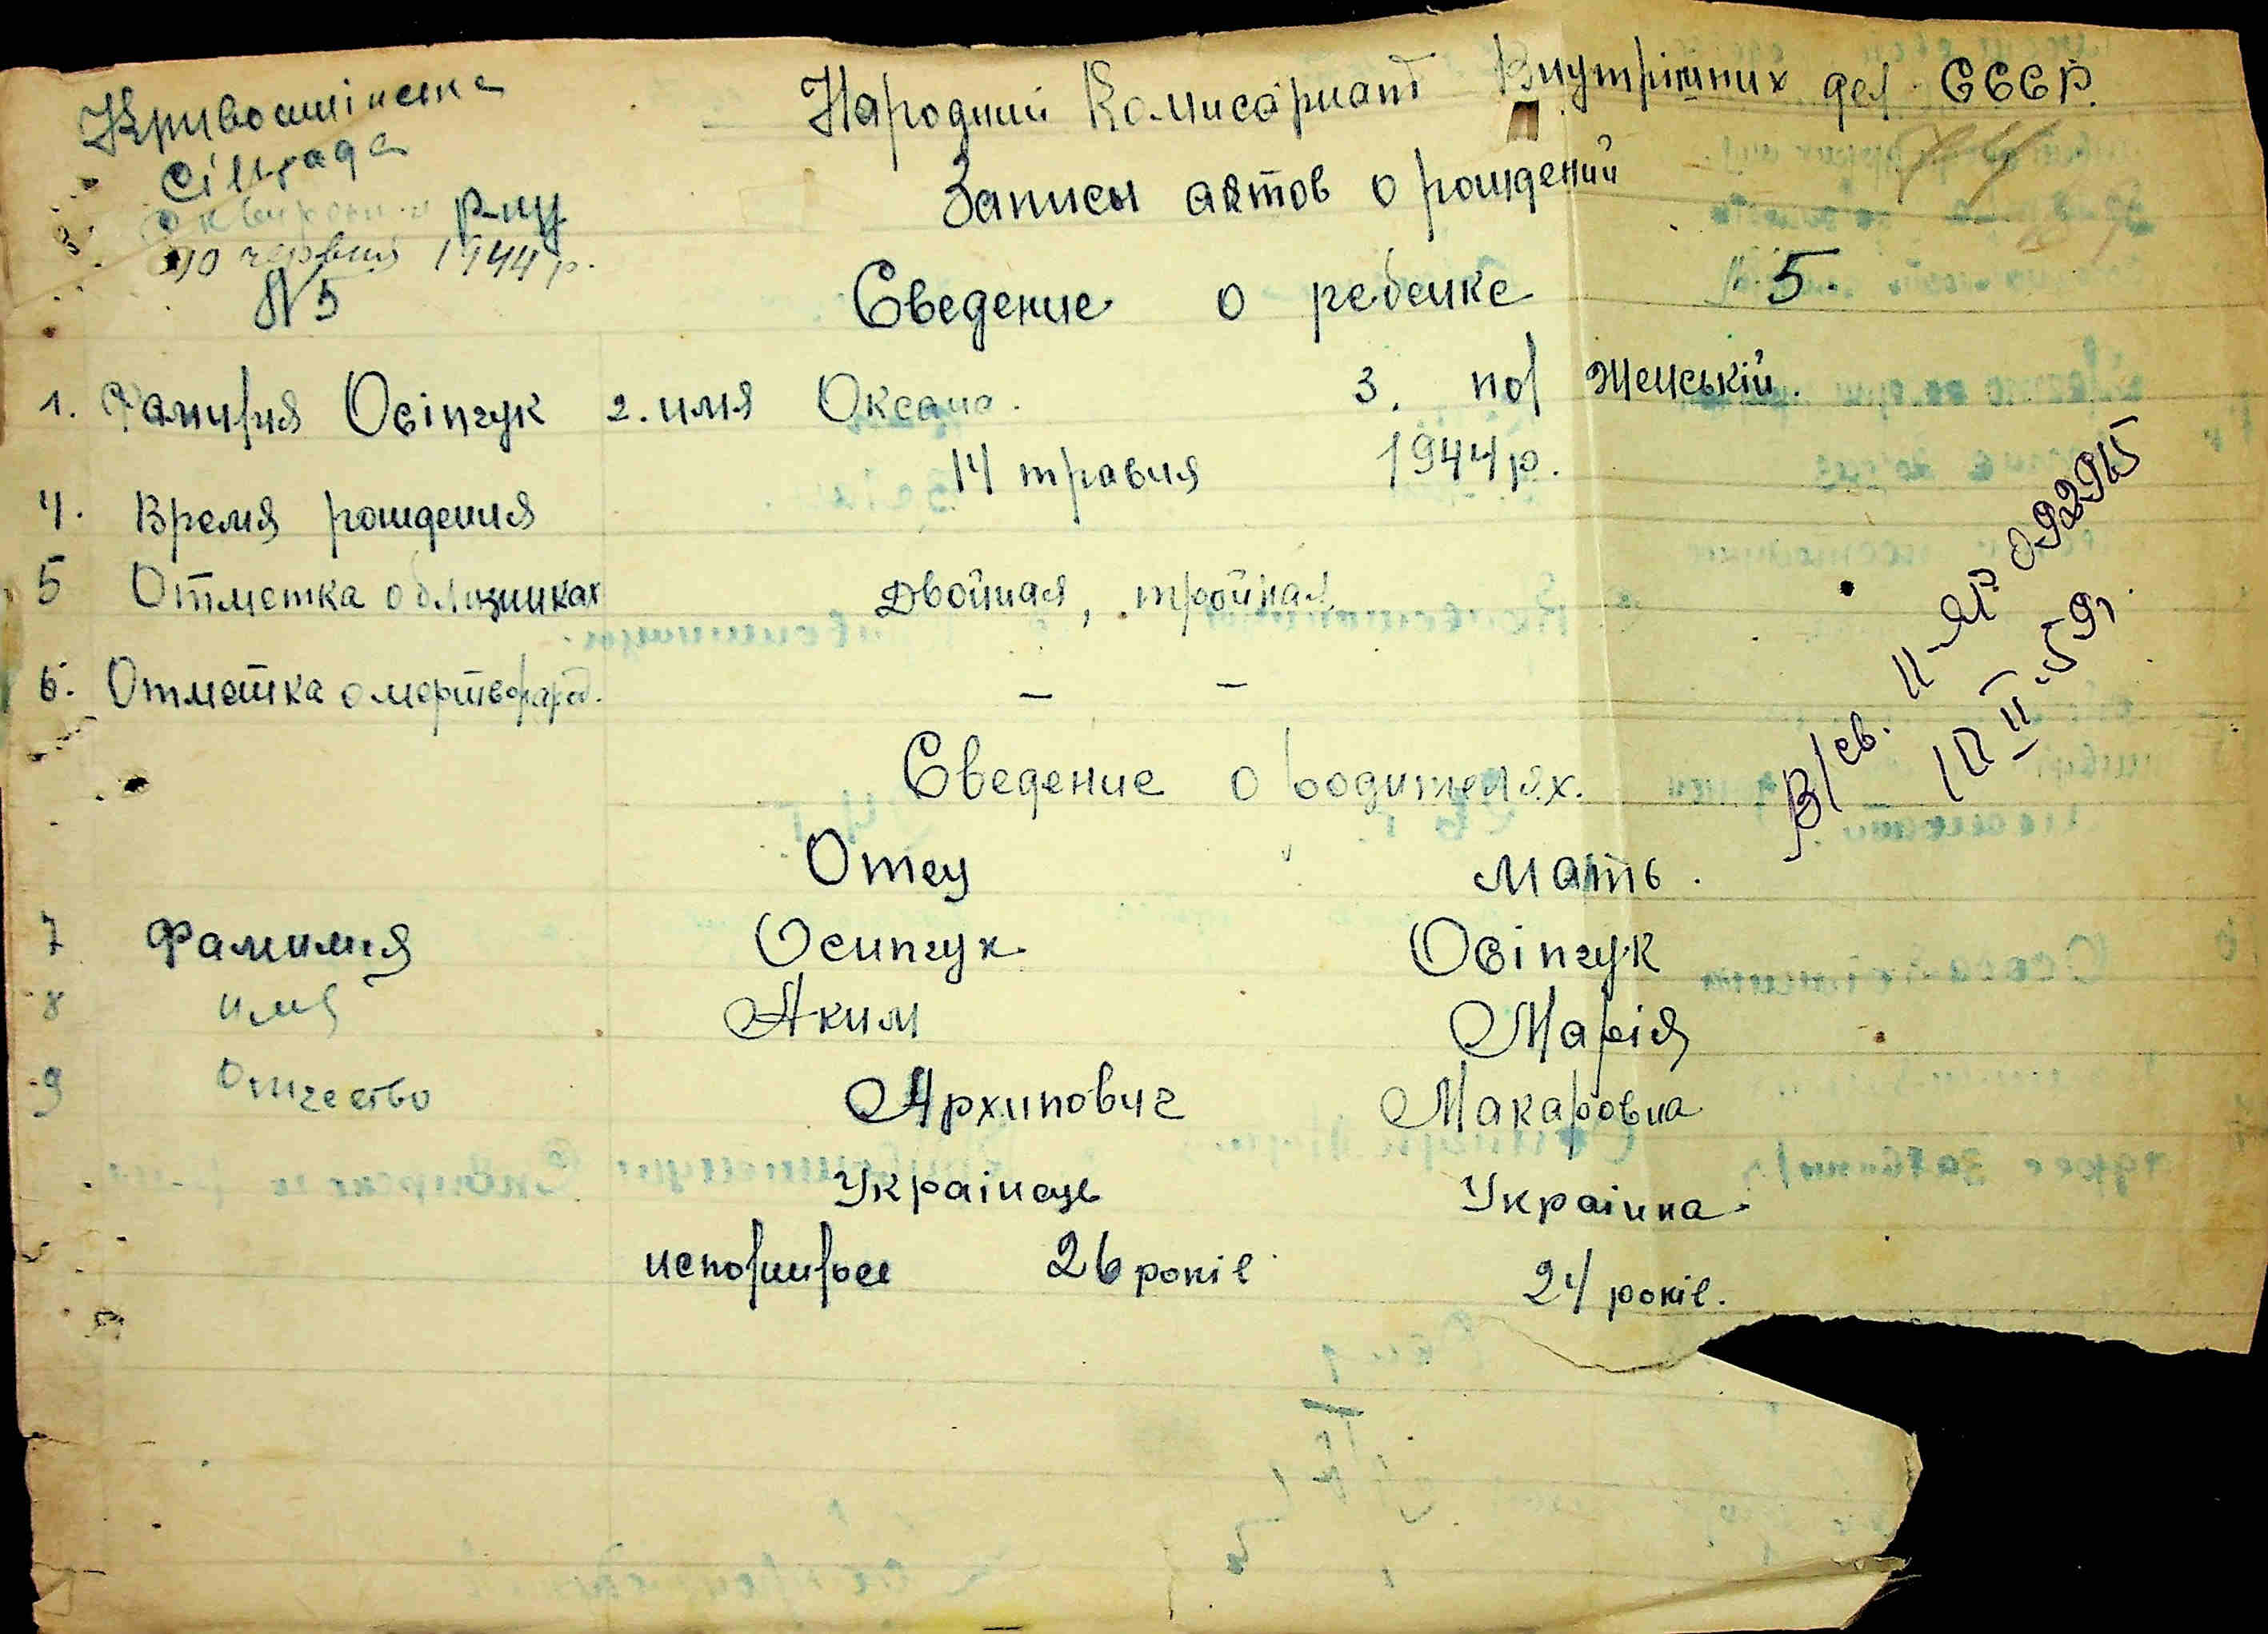 Кривошиїнська
Сільрада
Сквирского р-ну
10 червня 1944 р.
N 5
Народний Комисариат Внутрішних дел СССР.
Записы актов о рождений
Сведение о ребенке 5.
1. Фамилия Осіпчук 2. имя Оксана. 3. пол Женській.
14 травня 1944 р.
4. Время рождения
5 Отметка о близниках Двойная, тройная
6. Отметка о мертворожд. – –
В/св. II-ЯР 092945
II-59г.
Сведение о родителях.
Отец Мать.
7 Фамилия Осипчук Осіпчук
8 имя Аким Марія
9 Отчество Архипович Макаровна
Українець Українка.
исполнилось 26 років 24 років.